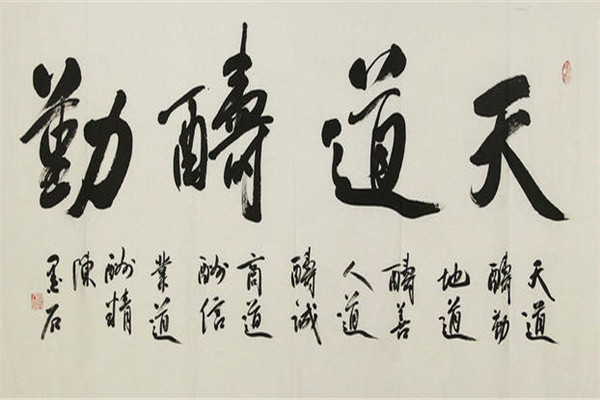 天道醻勤
天道
醻勤
地道
醻善
人道
醻誠
商道
酬信
業道
酬精
陳
墨石